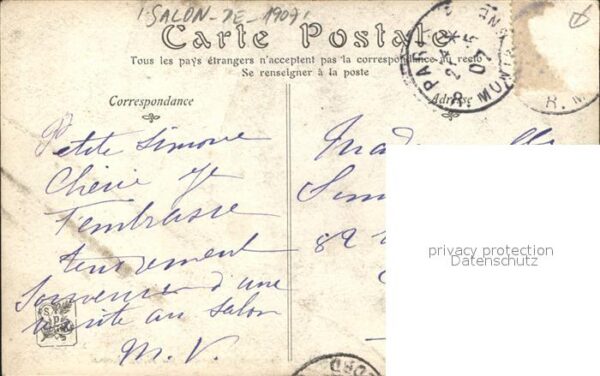 SALON-DE-1907
Carte Postale
Tous les pays étrangers n'acceptent pas la correspondance au recto
Se renseigner à la poste
Correspondance
Adresse
PARIS
07
R. MONT
R. M
Petite Simone
Chérie je
t'embrasse
tendrement
Souvenir d'une
visite au salon
M. V.
Mad
Sim
89
privacy protection
Datenschutz